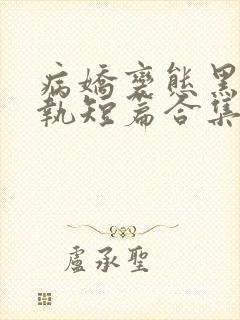 病嬌變態黑
執短篇合集
盧承聖